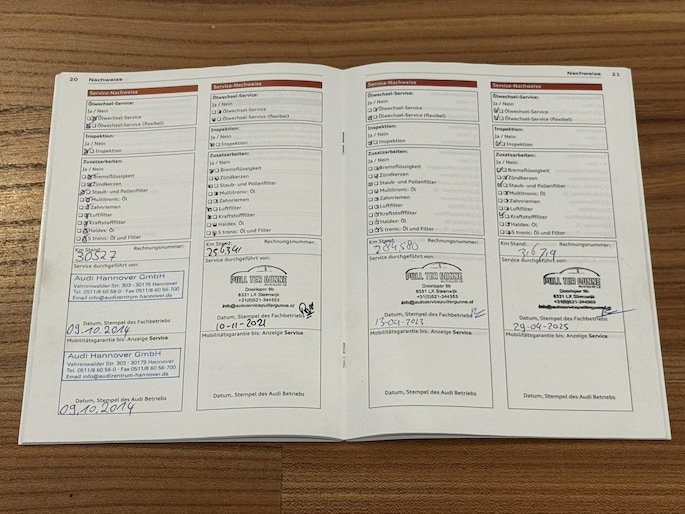 20 Nachweise
Service-Nachweise
Ölwechsel-Service:
Ja / Nein
Ölwechsel-Service
Ölwechsel-Service (flexibel)
Inspektion:
Ja / Nein
Inspektion
Zusatzarbeiten:
Ja / Nein
Bremsflüssigkeit
Zündkerzen
Staub- und Pollenfilter
Multitronic: Öl
Zahnriemen
Luftfilter
Kraftstofffilter
Haldex: Öl
S tronic: Öl und Filter
Km Stand: Rechnungsnummer:
30527
Service durchgeführt von:
Audi Hannover GmbH
Vahrenwalder Str. 303 - 30179 Hannover
Tel. 0511/8 60 56-0 · Fax 0511/8 60 56-700
Email info@audizentrum-hannover.de
Datum, Stempel des Fachbetriebs
09.10.2014
Mobilitätsgarantie bis: Anzeige Service
Audi Hannover GmbH
Vahrenwalder Str. 303 - 30179 Hannover
Tel. 0511/8 60 56-0 · Fax 0511/8 60 56-700
Email info@audizentrum-hannover.de
Datum, Stempel des Audi Betriebs
09.10.2014
Service-Nachweise
Ölwechsel-Service:
Ja / Nein
Ölwechsel-Service
Ölwechsel-Service (flexibel)
Inspektion:
Ja / Nein
Inspektion
Zusatzarbeiten:
Ja / Nein
Bremsflüssigkeit
Zündkerzen
Staub- und Pollenfilter
Multitronic: Öl
Zahnriemen
Luftfilter
Kraftstofffilter
Haldex: Öl
S tronic: Öl und Filter
Km Stand: Rechnungsnummer:
Service durchgeführt von:
PULL TER GUNNE
8331 LX Steenwijk
+31(0)521-344553
Datum, Stempel des Fachbetriebs
10-11-2021
Mobilitätsgarantie bis: Anzeige Service
Datum, Stempel des Audi Betriebs
Nachweise 21
Service-Nachweise
Ölwechsel-Service:
Ja / Nein
Ölwechsel-Service
Ölwechsel-Service (flexibel)
Inspektion:
Ja / Nein
Inspektion
Zusatzarbeiten:
Ja / Nein
Bremsflüssigkeit
Zündkerzen
Staub- und Pollenfilter
Multitronic: Öl
Zahnriemen
Luftfilter
Kraftstofffilter
Haldex: Öl
S tronic: Öl und Filter
Km Stand: Rechnungsnummer:
284580
Service durchgeführt von:
PULL TER GUNNE
8331 LX Steenwijk
+31(0)521-344553
Datum, Stempel des Fachbetriebs
Mobilitätsgarantie bis: Anzeige Service
Datum, Stempel des Audi Betriebs
Service-Nachweise
Ölwechsel-Service:
Ja / Nein
Ölwechsel-Service
Ölwechsel-Service (flexibel)
Inspektion:
Ja / Nein
Inspektion
Zusatzarbeiten:
Ja / Nein
Bremsflüssigkeit
Zündkerzen
Staub- und Pollenfilter
Multitronic: Öl
Zahnriemen
Luftfilter
Kraftstofffilter
Haldex: Öl
S tronic: Öl und Filter
Km Stand: Rechnungsnummer:
Service durchgeführt von:
PULL TER GUNNE
8331 LX Steenwijk
+31(0)521-344553
Datum, Stempel des Fachbetriebs
29-04-2025
Mobilitätsgarantie bis: Anzeige Service
Datum, Stempel des Audi Betriebs